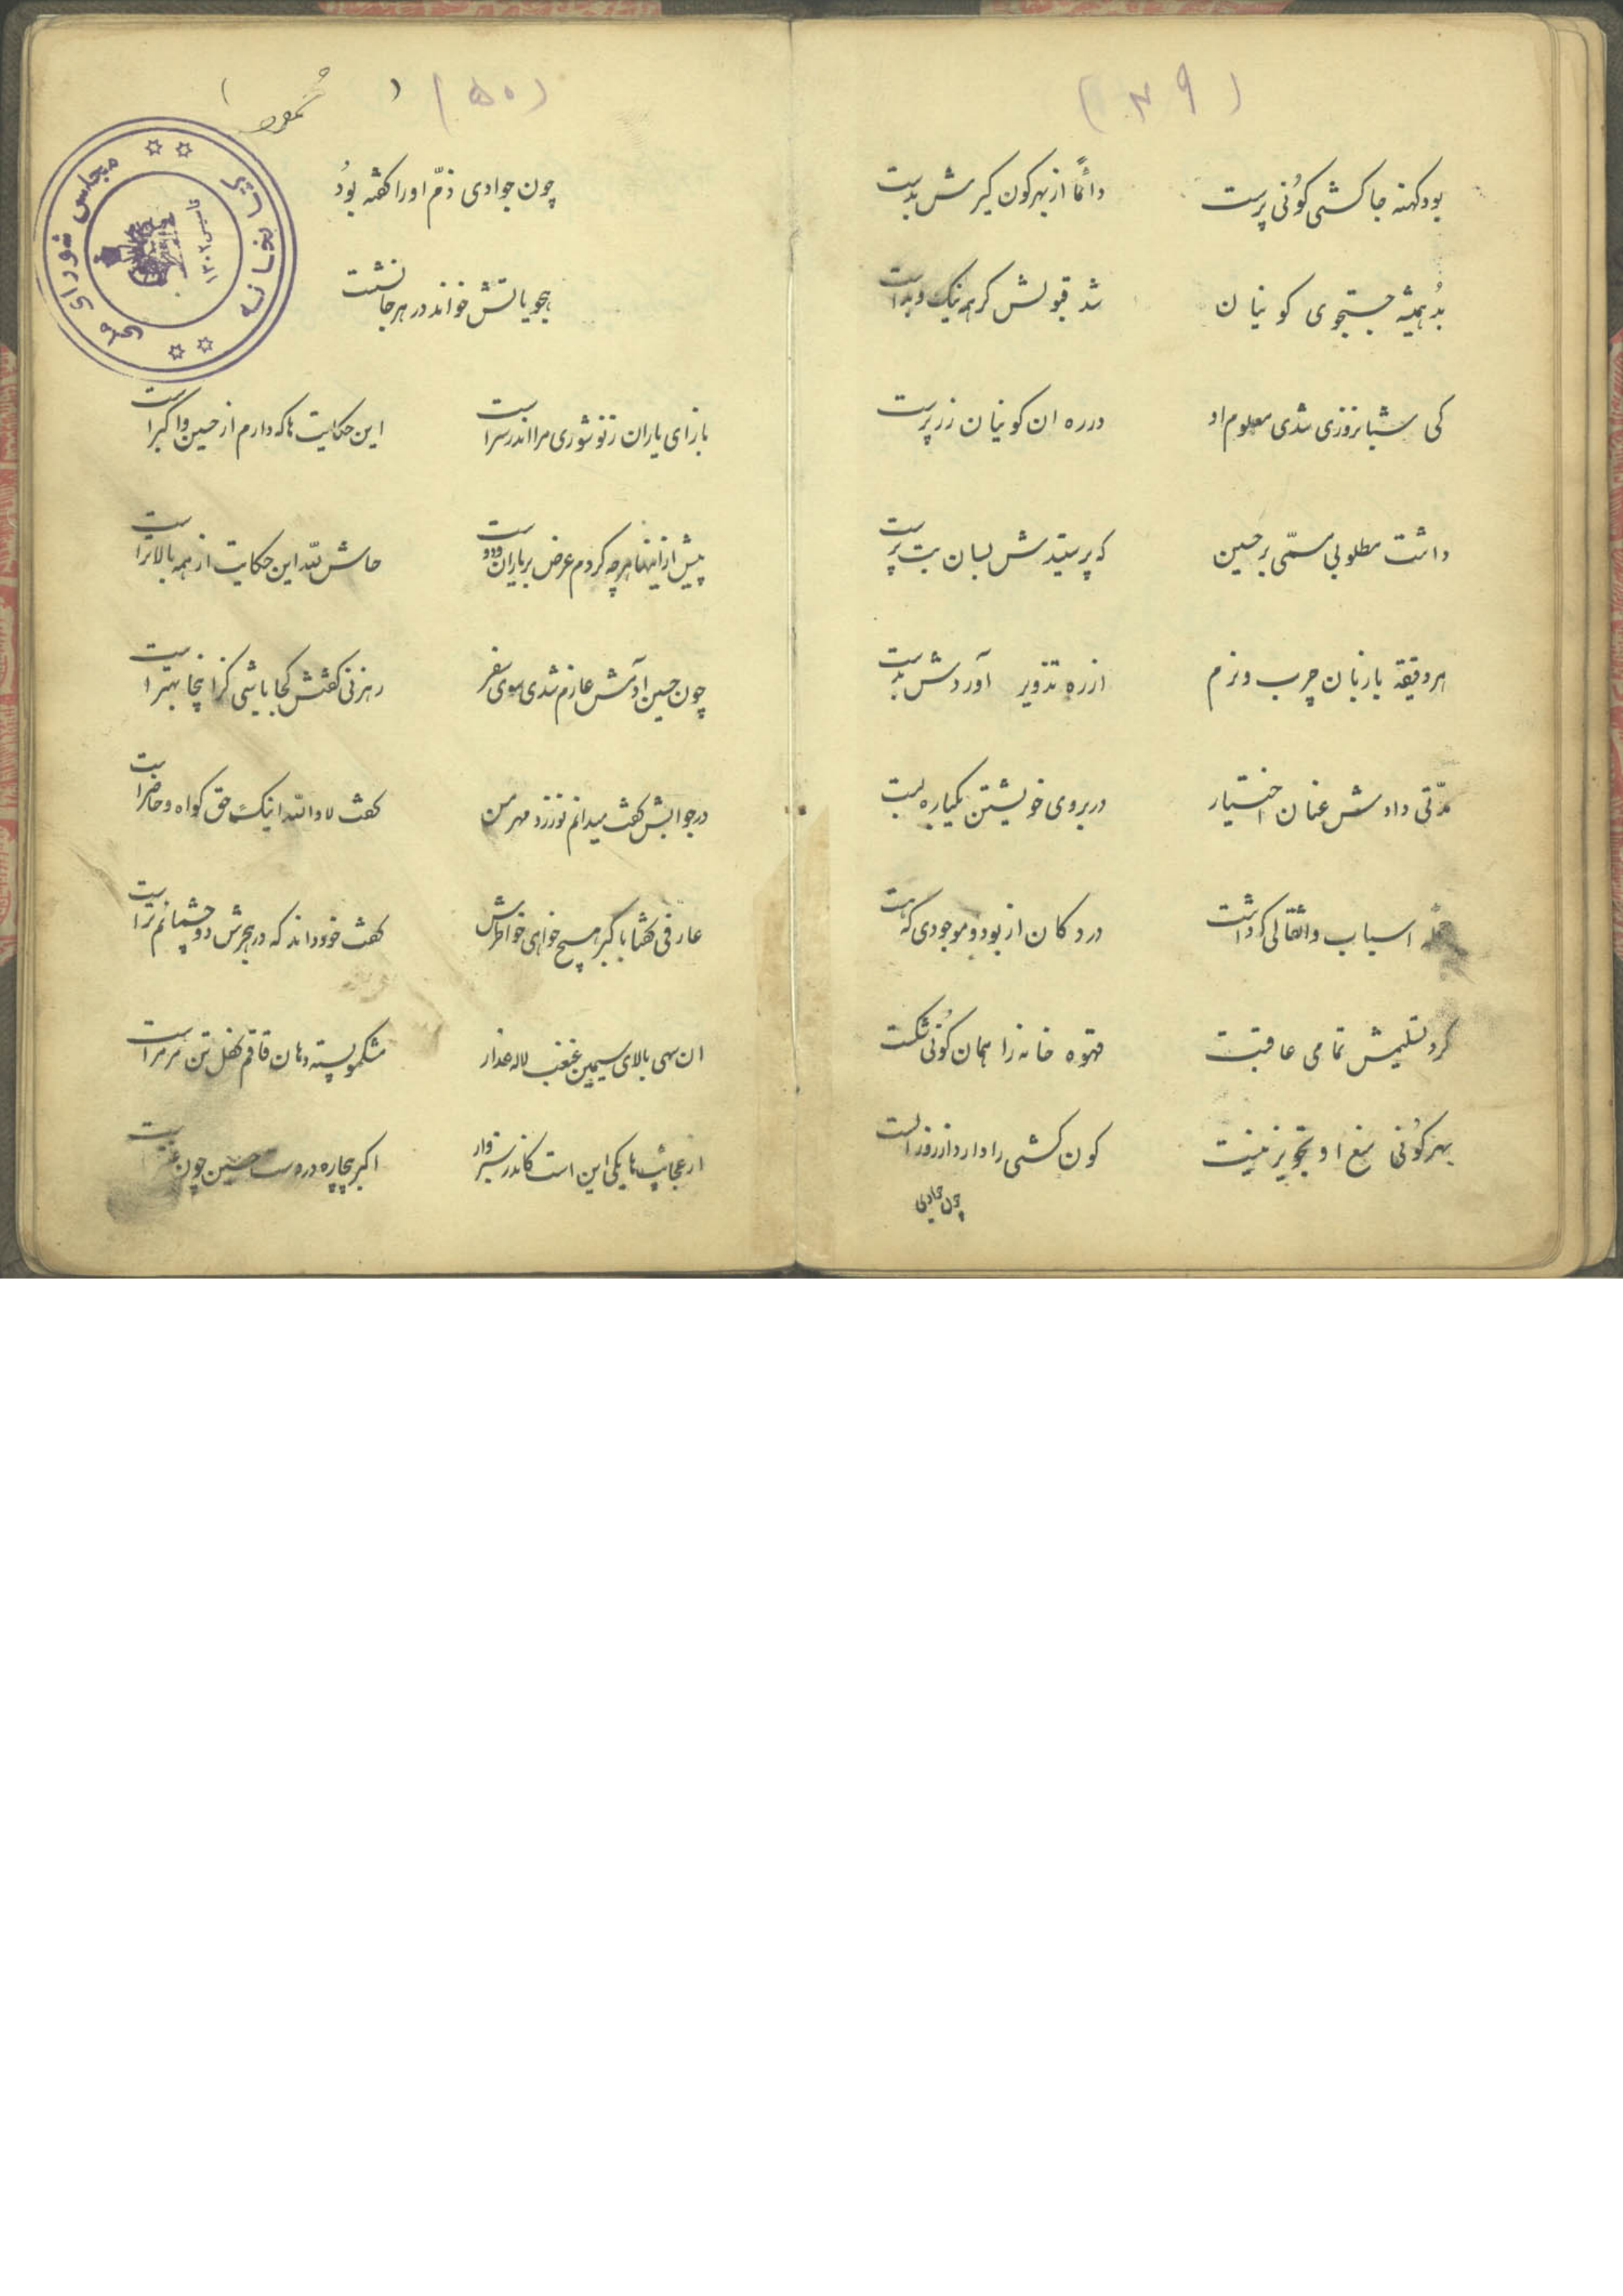 (۴۹)
بود کهنه جاکشی کُونی پرست دائماً از بهر کون کیرش بدست
بُد همیشه جستجوی کونیان شد قبولش گر همه نیک و بد است
کی شبانروزی شدی معلوم او در ره ان کونیان زرپرست
داشت مطلوبی مسمّی بر حسین که پرستیدش بسان بت پرست
هر دقیقه با زبان چرب و نرم از ره تزویر آوردش بدست
مدّتی دادش عنان اختیار در بروی خویشتن یکباره بست
اسباب و اثقالی که داشت در دکان از بود و موجودی که هست
کرد تسلیمش تمامی عاقبت قهوه خانه زا همان کُونی شکست
بهر کُونی منع او تجویز نیست کون کشی را دارد از روز الست
چون جوادی
(۵۰)
چون جوادی ذمّ او را گفته بُود
هجویاتش خواند در هر جا نشست
باز ای یاران ز نو شوری مرا اندر سر است این حکایت ها که دارم از حسین و اکبر است
پیش از اینها هرچه کردم عرض بر یاران حاش لله این حکایت از همه بالاتر است
چون حسین ادمش عازم شدی سوی سفر رهزنی گفتش کجا باشی کز اینجا بهتر است
در جوابش گفت میدانم نورزد مهر من گفت لا والله اینک حق گواه و حاضر است
عارفی گفتا با کبر هیچ خواهی خواطرش گفت خود داند که در هجرش دو چشمانم تر است
ان سهی بالای سیمین غبغب لاله عذار مشکمو پسته دهان قاقم کفل تن مرمر است
از عجائب ها یکی این است کاندر سبزوار اکبر بیچاره در دست حسین چون
کتابخانه مجلس شورای ملی
تاسیس ۱۳۰۲